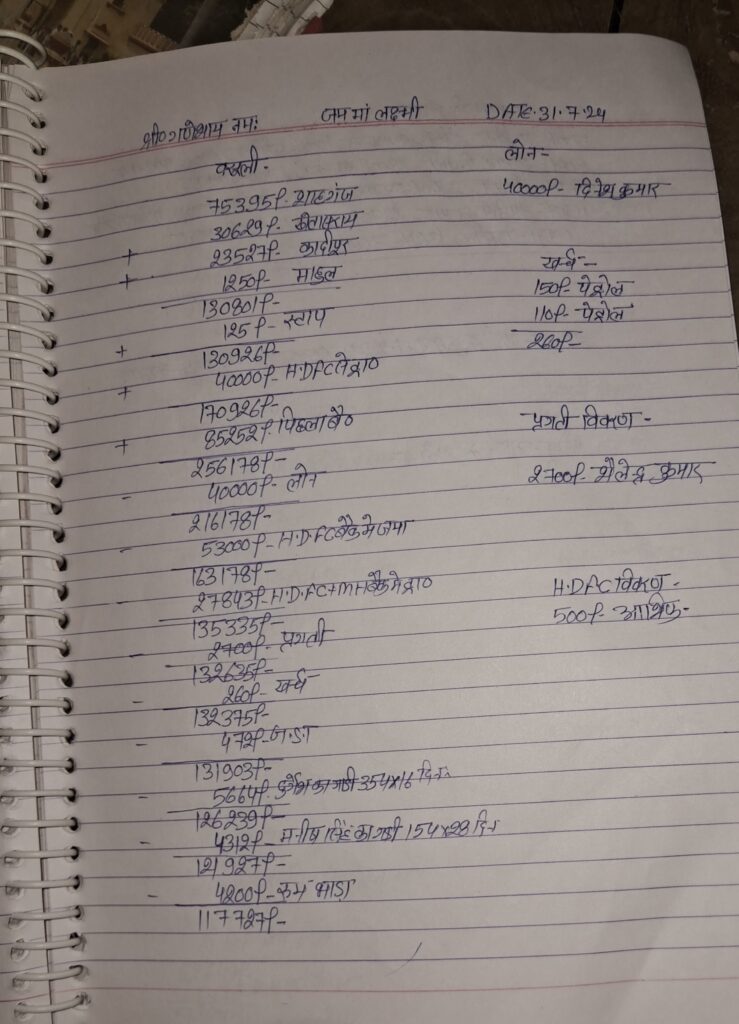 श्री० गणेशाय नमः जय मां लक्ष्मी DATE. 31.7.24
वसूली - लोन -
75395/- शाहगंज 40000/- दिनेश कुमार
30629/- खेतासराय
+ 23527/- कादीपुर खर्च -
+ 1250/- माहुल 150/- पेट्रोल
130801/- 110/- पेट्रोल
+ 125/- स्टाप 260/-
130926/-
+ 40000/- H.DFC से
170926/-
+ 85252/- पिछला बै० प्रगती विवरण -
256178/-
- 40000/- लोन 2700/- शैलेन्द्र कुमार
216178/-
- 53000/- H.DFC बैंक मे जमा
163178/-
- 27843/- H.D.FC+MH बैंक मे H.DFC विवरण -
135335/- 500/-
- 2700/- प्रगती
132635/-
- 260/- खर्च
132375/-
- 472/-
131903/-
- 5664/- का गाडी 354x16 दिन
126239/-
- 4312/- मनीष सिंह का गाडी 154x28 दिन
121927/-
- 4200/- रुम भाडा
117727/-